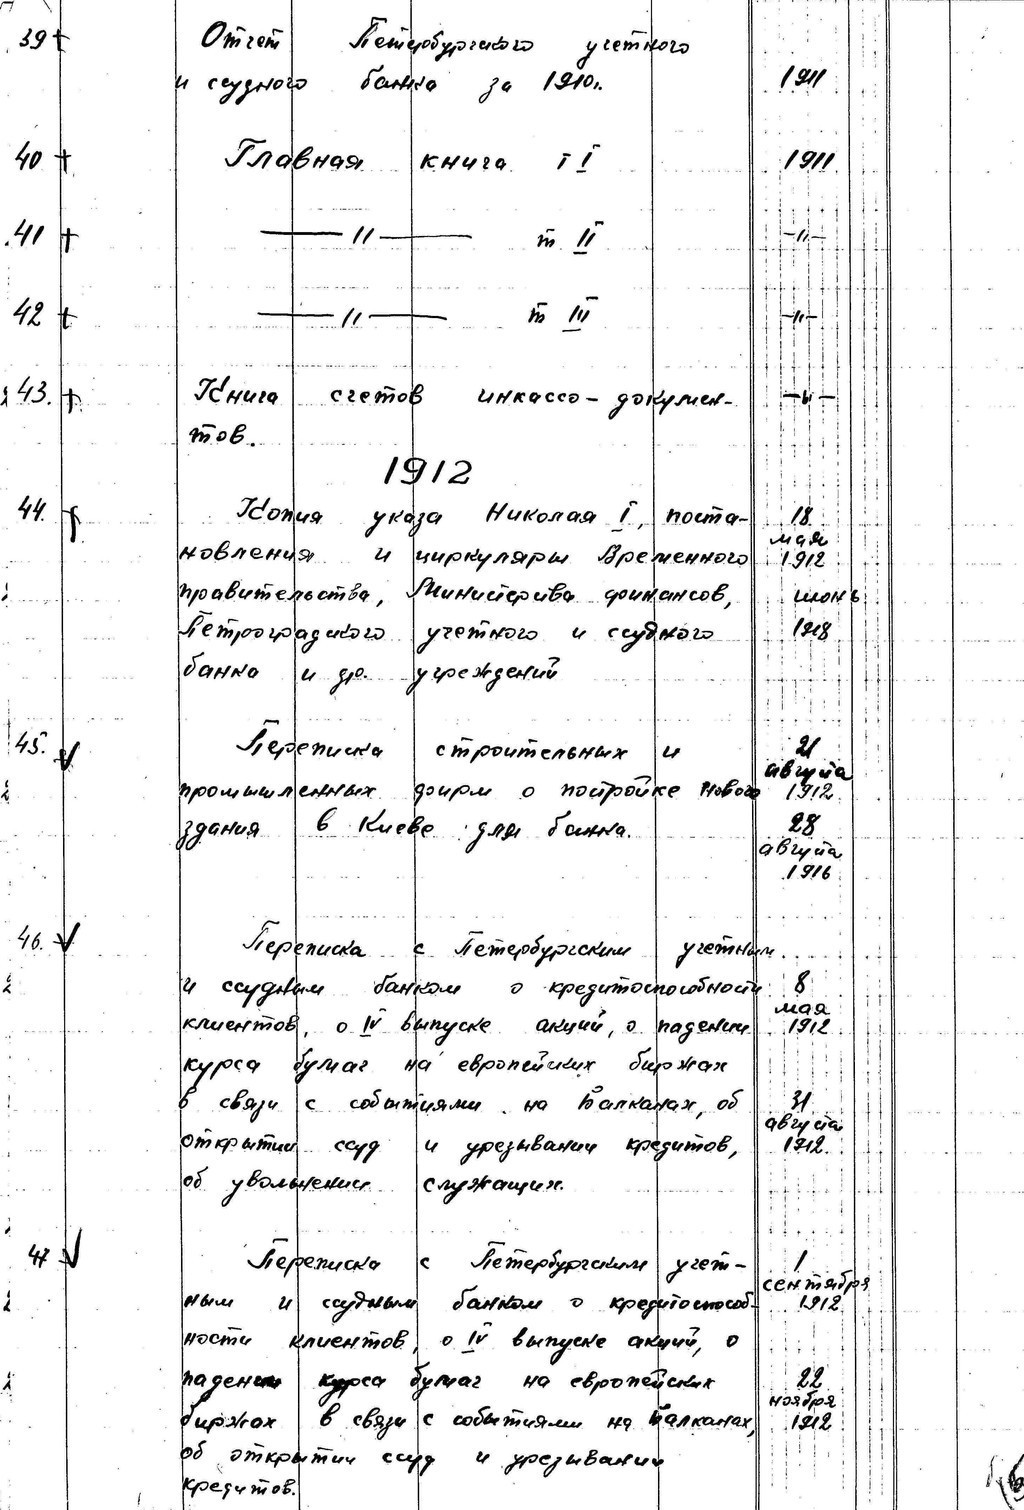 39 Отчет Петербургского учетного
и ссудного банка за 1910г. 1911
40 Главная книга т I 1911
41 —— 〃 —— т II —〃—
42 —— 〃 —— т III —〃—
43. Книга счетов инкассо-докумен- —〃—
тов.
1912
44. Копия указа Николая I, поста- 18
мая
новления и циркуляры Временного 1912
правительства, Министерства финансов, июнь
Петроградского учетного и ссудного 1918
банка и др. учреждений
45. Переписка строительных и 21
августа
промышленных фирм о постройке нового 1912
здания в Киеве для банка. 28
августа
1916
46. Переписка с Петербургским учетным
и ссудным банком о кредитоспособности 8
мая
клиентов, о IV выпуске акций, о падении 1912
курса бумаг на европейских биржах
в связи с событиями на Балканах, об 31
августа
открытии ссуд и урезывании кредитов, 1912.
об увольнении служащих.
47 Переписка с Петербургским учет- 1
сентября
ным и ссудным банком о кредитоспособ- 1912
ности клиентов, о IV выпуске акций, о
падении курса бумаг на европейских 22
ноября
биржах в связи с событиями на Балканах, 1912
об открытии ссуд и урезывании
кредитов.